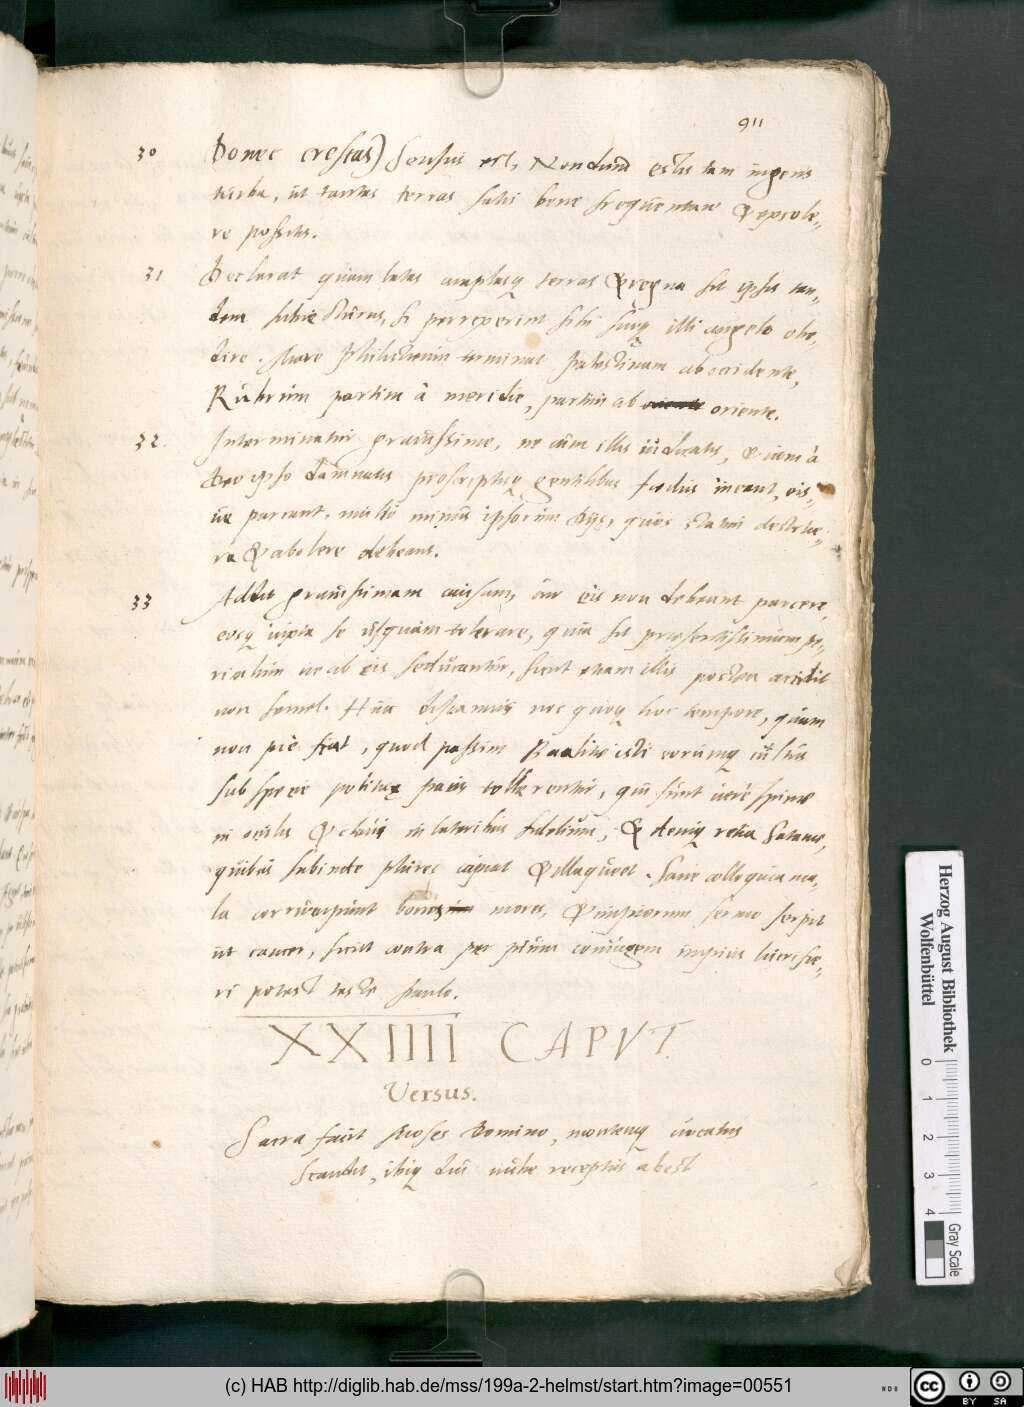 911
30 Donec crescas) Sensus est, Nondum estis tam ingens
turba, ut tantas terras satis bene frequentare & excole„
re possitis.
31 Declarat quam latas amplasq terras & regna sit ipsis tan„
dem subiecturus, si perrexerint sibi suoq illi angelo obe„
dire. Mare Philistiim terminat Palæstinam ab occidente,
Rubrum partim à meridie, partim ab oriente.
32. Interminatur gravissime, ne cum illis iudicatis, & iam à
Deo ipso damnatis proscriptisq gentilibus foedus ineant, eis„
ve parcant, multo minus ipsorum dijs, quos etiam destrue„
re & abolere debeant.
33 Addit gravissimam causam, cur eis non debeant parcere,
eosq iuxta se usquam tolerare, quia sit præsentissimum pe„
riculum ne ab eis seducantur, sicut etiam illis postea accidit
non semel. Hinc discamus nos quoq hoc tempore, quam
non pie fiat, quod passim Baalitici isti eorumq cultus
sub specie politicæ pacis tollerentur, qui sunt veræ spinæ
in oculis & clavi in lateribus fidelium, & deniq retia Satanæ,
quibus subinde plures capiat & illaqueet. Sane colloquia ma„
la corrumpunt bonos mores, & impiorum sermo serpit
ut cancer, sicut contra per pium coniugem impius lucrife„
ri potest teste Paulo.
XXIIII CAPVT.
Versus.
Sacra facit Moses Domino, montemq vocatus
Scandit, ibiq diu nube receptus abest
Herzog August Bibliothek
Wolfenbüttel
0 1 2 3 4
Gray Scale
(c) HAB http://diglib.hab.de/mss/199a-2-helmst/start.htm?image=00551
cc BY SA